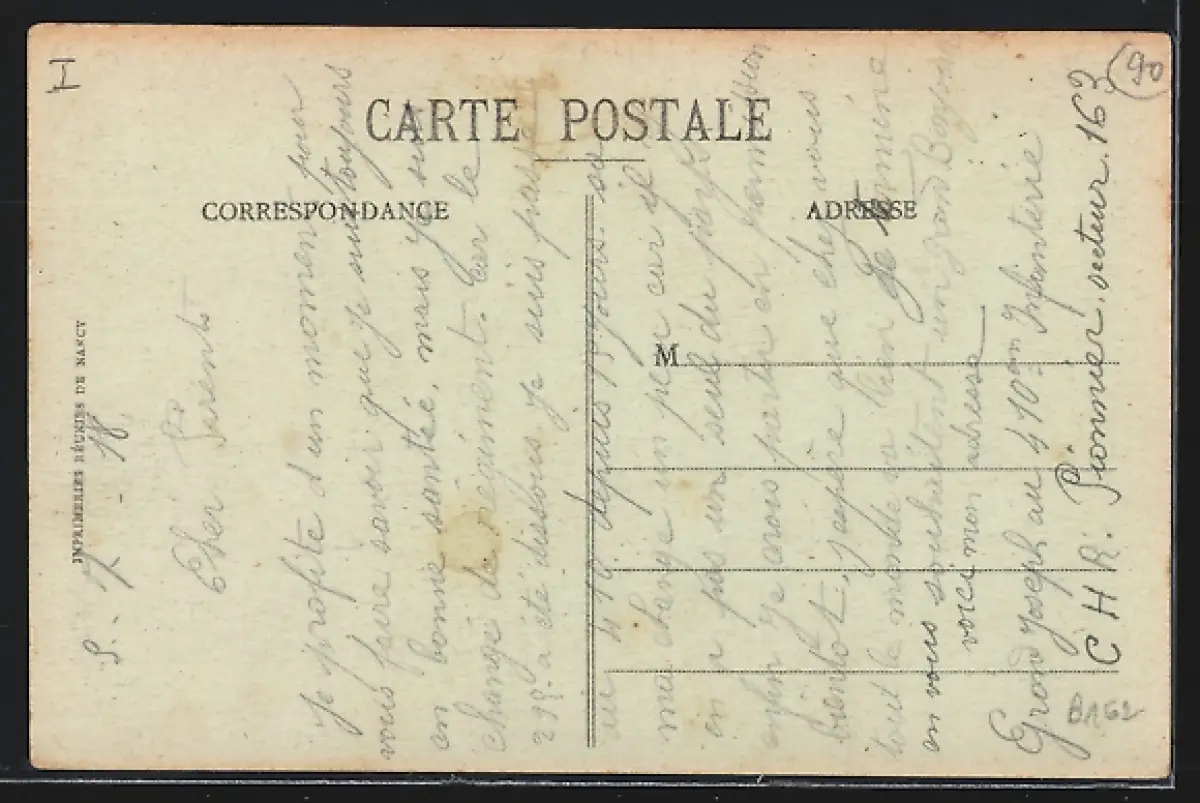 CARTE POSTALE
CORRESPONDANCE
ADRESSE
M
IMPRIMERIES RÉUNIES DE NANCY
H
90
BA62
5 - 7 - 18
Cher Parents
Je profite d'un moment pour
vous faire savoir que je suis toujours
en bonne santé, mais je suis
changé de régiment. Car le
a été dissous je suis passé
au 410 depuis 15 jours
me change un peu car il
en a pas un seul du pays
enfin je crois partir en permission
bientôt, j'aspère que chez vous
tout le monde va bien je termine
en vous souhaitent un grand Bonjour
voici mon adresse
Grand Joseph au 410 em Infanterie
C H R. Pionnier. secteur. 163